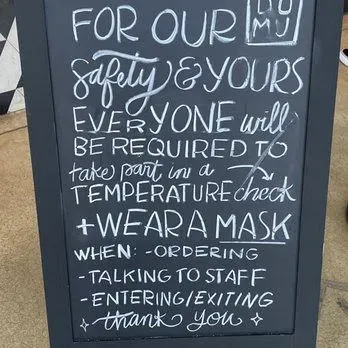 FOR OUR
LUMU
Safety & YOURS
EVERYONE will
BE REQUIRED TO
take part in a
TEMPERATURE check
+ WEAR A MASK
WHEN: -ORDERING
-TALKING TO STAFF
-ENTERING/EXITING
thank you